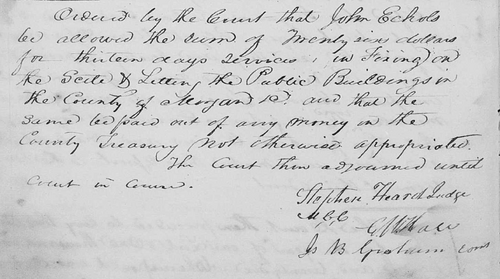 Ordered by the Court that John Echols
be allowed the sum of Twenty six dollars
for thirteen days services, in Fixing on
the Scite & Letting the Public Buildings in
the County of Morgan &c. and that the
same be paid out of any money in the
County Treasury not otherwise appropriated.
The Court then adjourned until
Court in Course.
Stephen Heard Judge
M.C.C.
Js B. Graham Coms